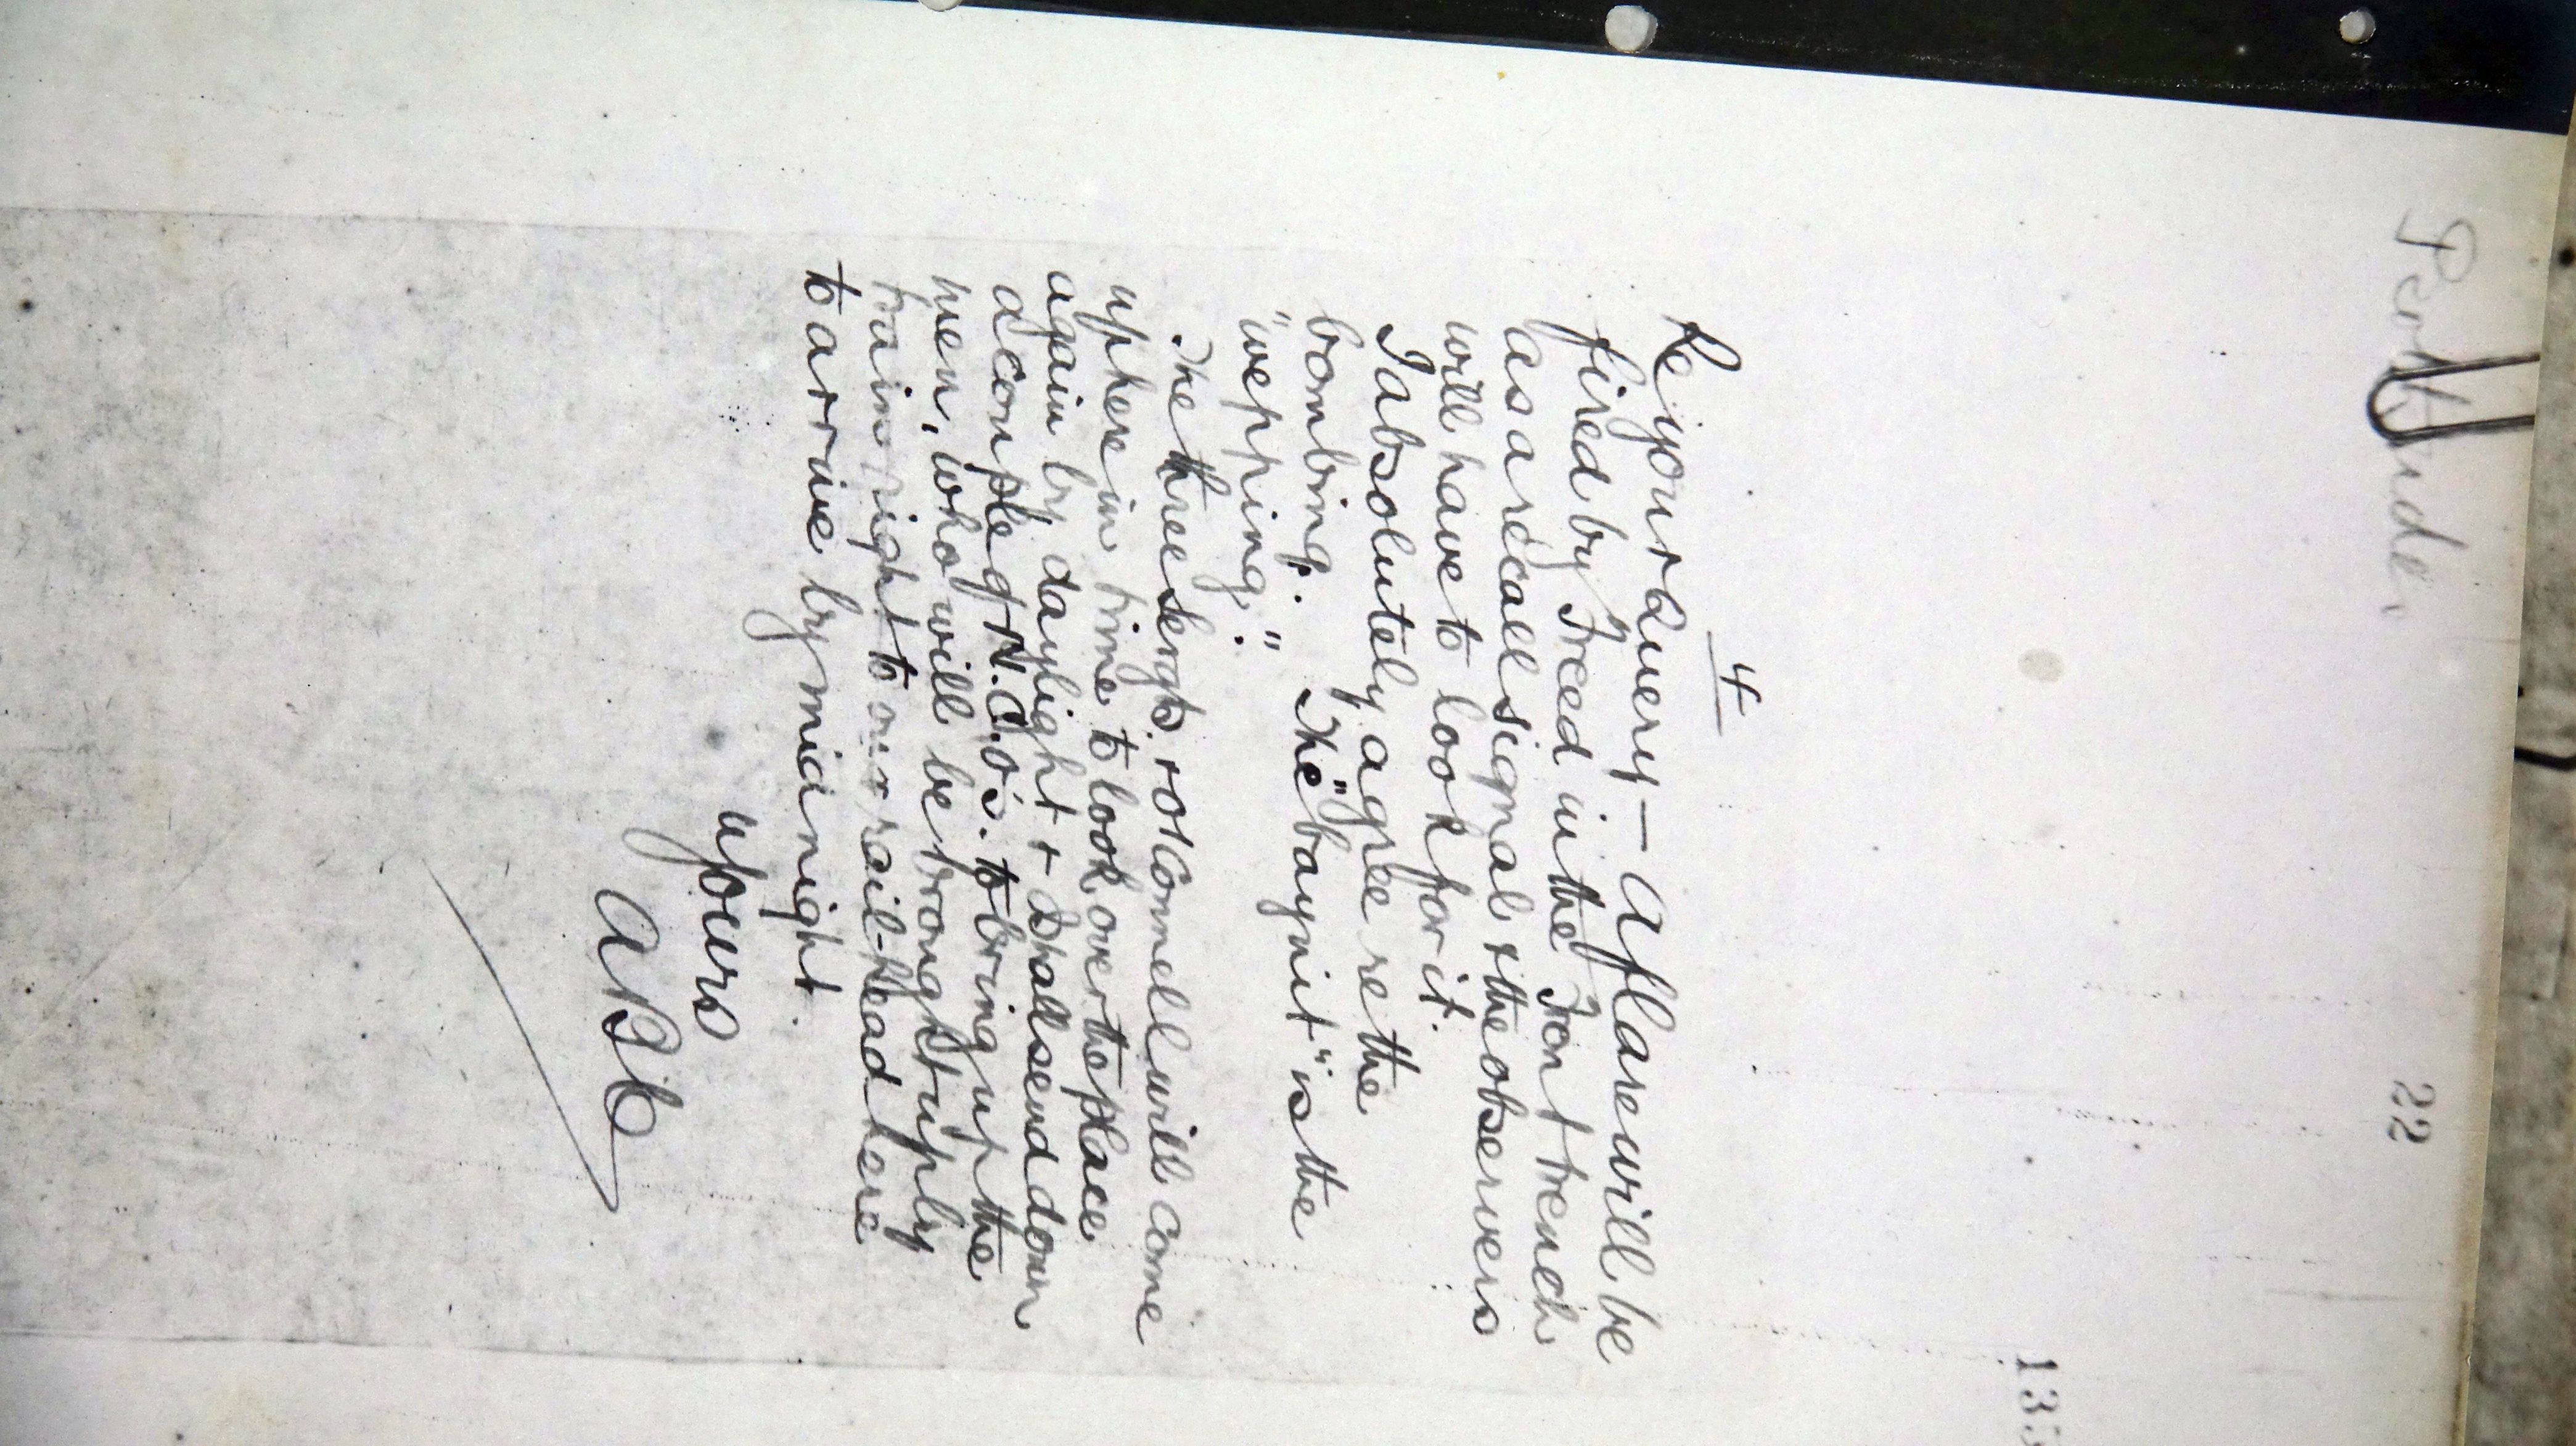 22
4
Re your query - A flare will be
fired by Freed in the Font trench
as a recall signal & the observers
will have to look for it.
I absolutely agree re the
bombing. The "baynit" is the
"wepping".
The three Sergts. & O'Connell will come
up here in time to look over the place
again by daylight & I shall send down
a couple of N.C.O's. to bring up the
men, who will be brought up by
train right to our rail-head here
to arrive by midnight.
yours